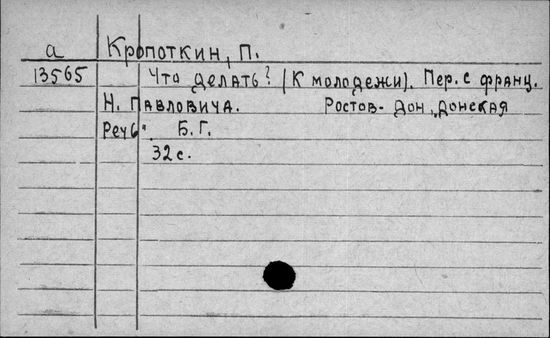 а Кропоткин, П.
13565 Что делать? (К молодежи). Пер. с франц.
Н. Павловича. Ростов-Дон, "Донская
Речь". Б.Г.
32 с.